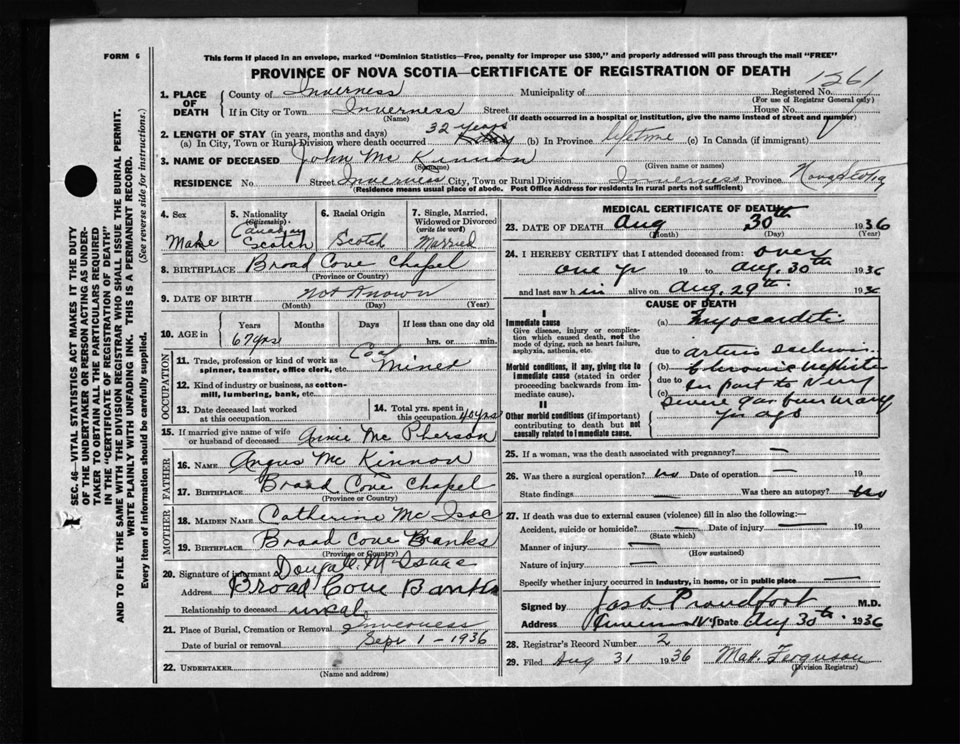 FORM 6
This form if placed in an envelope, marked "Dominion Statistics—Free, penalty for improper use $300," and properly addressed will pass through the mail "FREE"
PROVINCE OF NOVA SCOTIA—CERTIFICATE OF REGISTRATION OF DEATH
SEC. 46—VITAL STATISTICS ACT MAKES IT THE DUTY
OF THE UNDERTAKER OR PERSON ACTING AS UNDER-
TAKER TO OBTAIN ALL THE PARTICULARS REQUIRED
IN THE "CERTIFICATE OF REGISTRATION OF DEATH"
AND TO FILE THE SAME WITH THE DIVISION REGISTRAR WHO SHALL ISSUE THE BURIAL PERMIT.
WRITE PLAINLY WITH UNFADING INK. THIS IS A PERMANENT RECORD.
Every item of information should be carefully supplied. (See reverse side for instructions.)
1. PLACE OF DEATH
County of Inverness Municipality of Registered No. 1261
(For use of Registrar General only)
If in City or Town Inverness Street House No.
(Name) (If death occurred in a hospital or institution, give the name instead of street and number)
2. LENGTH OF STAY (in years, months and days)
(a) In City, Town or Rural Division where death occurred 32 years (b) In Province lifetime (c) In Canada (if immigrant)
3. NAME OF DECEASED John Mc Kinnon
(Surname) (Given name or names)
RESIDENCE No. Street Inverness City, Town or Rural Division Inverness Province Nova Scotia
(Residence means usual place of abode. Post Office Address for residents in rural parts not sufficient)
4. Sex
Make
5. Nationality
(Citizenship)
Canadian
Scotch
6. Racial Origin
Scotch
7. Single, Married,
Widowed or Divorced
(write the word)
Married
8. BIRTHPLACE Broad Cove Chapel
(Province or Country)
9. DATE OF BIRTH not known
(Month) (Day) (Year)
10. AGE in
Years Months Days If less than one day
67 yrs hrs. or min.
OCCUPATION
11. Trade, profession or kind of work as
spinner, teamster, office clerk, etc. Coal Miner
12. Kind of industry or business, as cotton-
mill, lumbering, bank, etc.
13. Date deceased last worked
at this occupation
14. Total yrs. spent in
this occupation 40 yrs
15. If married give name of wife
or husband of deceased Annie Mc Pherson
FATHER
16. NAME Angus Mc Kinnon
17. BIRTHPLACE Broad Cove Chapel
(Province or Country)
MOTHER
18. MAIDEN NAME Catherine Mc Isac
19. BIRTHPLACE Broad Cove Banks
(Province or Country)
20. Signature of informant Dougall McIsaac
Address Broad Cove Banks
Relationship to deceased
21. Place of Burial, Cremation or Removal Inverness
Date of burial or removal Sept 1-1936
22. UNDERTAKER
(Name and address)
MEDICAL CERTIFICATE OF DEATH
23. DATE OF DEATH Aug 30th 1936
(Month) (Day) (Year)
24. I HEREBY CERTIFY that I attended deceased from: over
one yr 19 to Aug. 30th 1936
and last saw him alive on Aug. 29th 1936
CAUSE OF DEATH
I
Immediate cause
Give disease, injury or complica-
tion which caused death, not the
mode of dying, such as heart failure,
asphyxia, asthenia, etc.
Morbid conditions, if any, giving rise to
immediate cause (stated in order
proceeding backwards from im-
mediate cause).
II
Other morbid conditions (if important)
contributing to death but not
causally related to immediate cause.
(a) Myocarditis
due to
(b) Chronic nephritis
due to
(c) in part to very
severe gas burn many
yrs ago
25. If a woman, was the death associated with pregnancy? —
26. Was there a surgical operation? no Date of operation — 19
State findings — Was there an autopsy? no
27. If death was due to external causes (violence) fill in also the following:—
Accident, suicide or homicide? — Date of injury — 19
(State which)
Manner of injury —
(How sustained)
Nature of injury —
Specify whether injury occurred in industry, in home, or in public place —
Signed by Jas. Proudfoot M.D.
Address Inverness N.S. Date Aug 30th 1936
28. Registrar's Record Number 2
29. Filed Aug 31 1936 Ferguson
(Division Registrar)